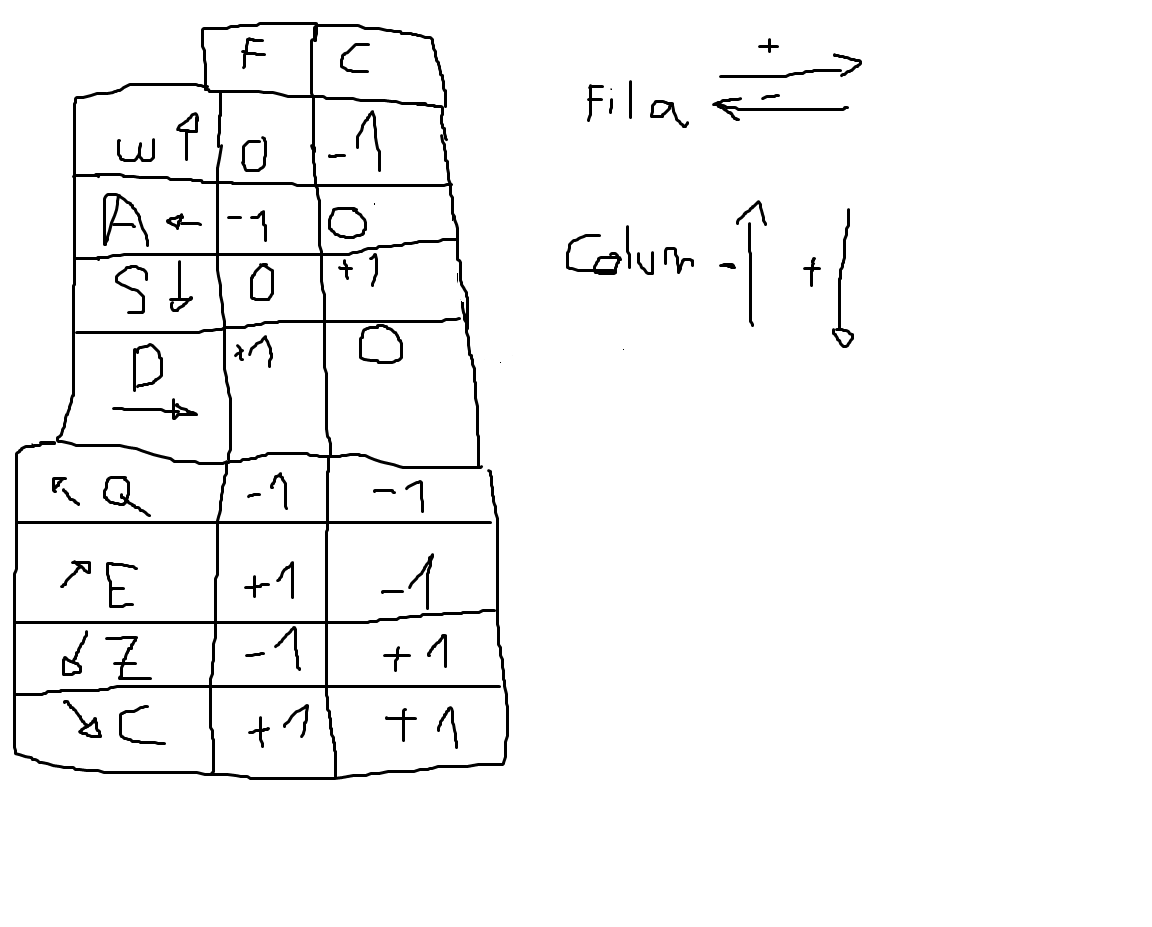 F C
W ↑ 0 -1
A ← -1 0
S ↓ 0 +1
D → +1 0
↖ Q -1 -1
↗ E +1 -1
↙ Z -1 +1
↘ C +1 +1
+
Fila
-
Colum - ↑ + ↓